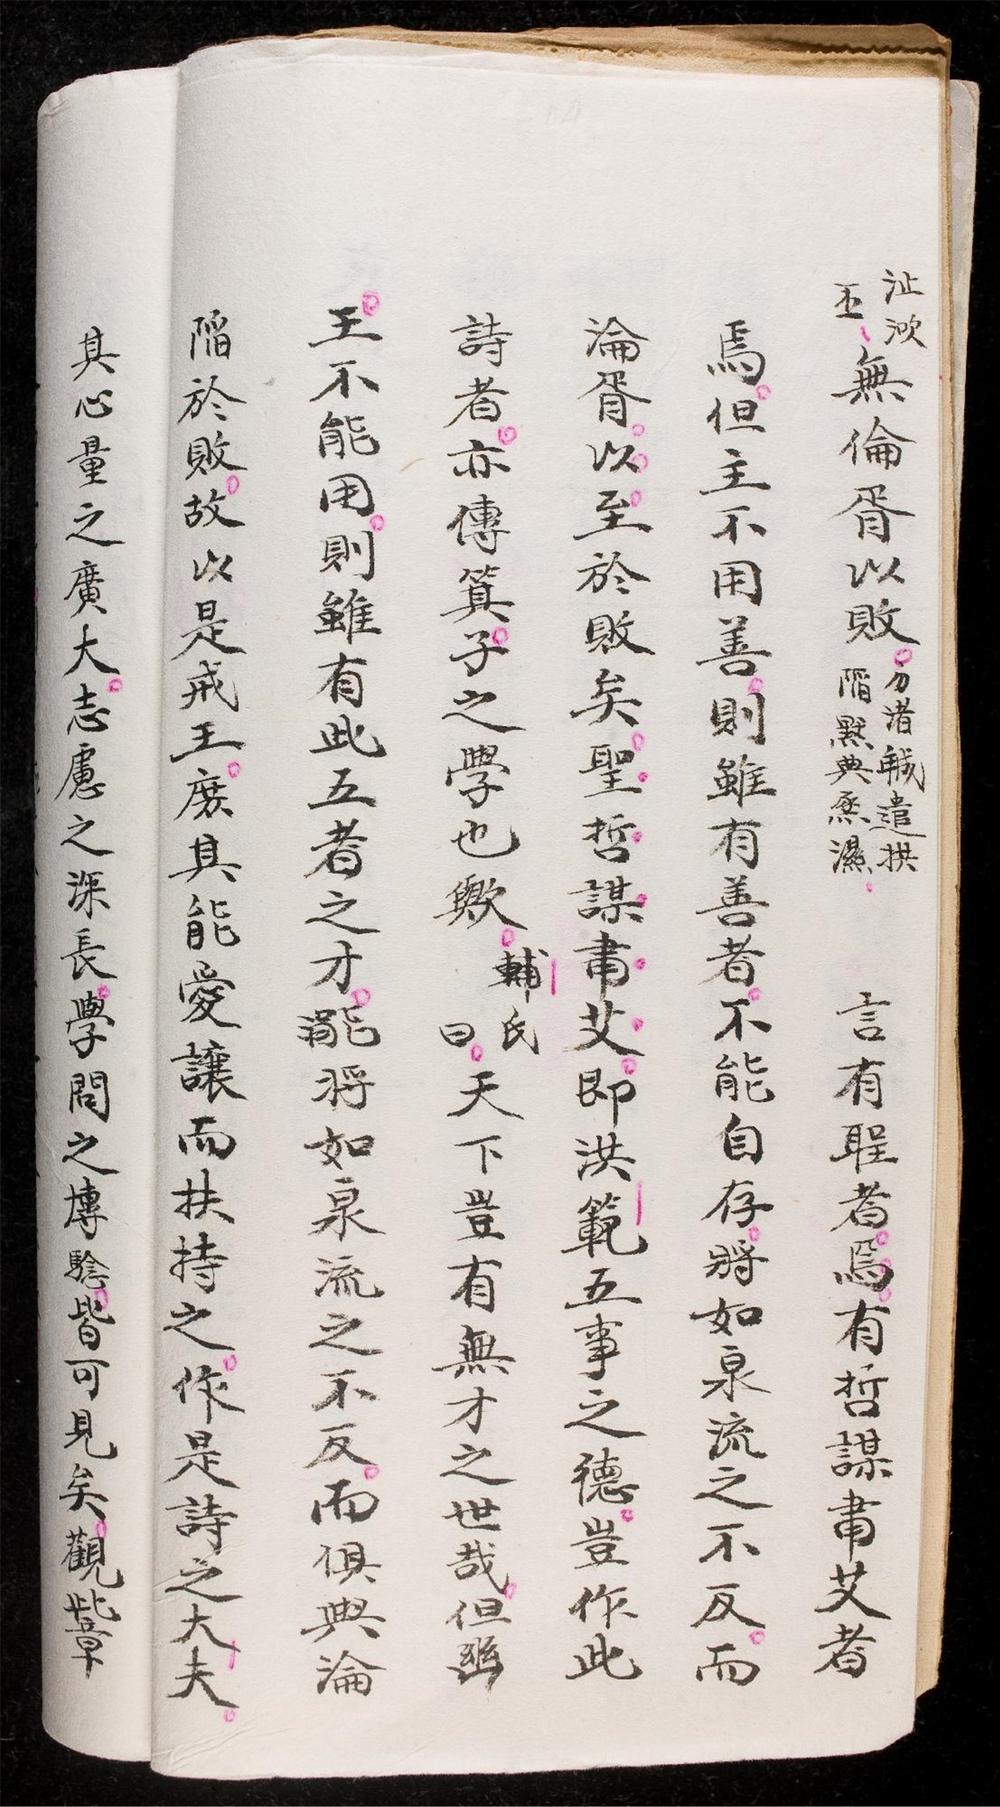 無倫胥以敗 陷 言有聖者焉有哲謀肅艾者
焉但主不用善則雖有善者不能自存將如泉流之不反而
淪胥以至於敗矣聖哲謀肅艾即洪範五事之德豈作此
詩者亦傳箕子之學也歟輔氏曰天下豈有無才之世哉但幽
王不能用則雖有此五者之才將如泉流之不反而俱與淪
陷於敗故以是戒王庶其能愛護而扶持之作是詩之大夫
其心量之廣大志慮之深長學問之博驗皆可見矣觀此章